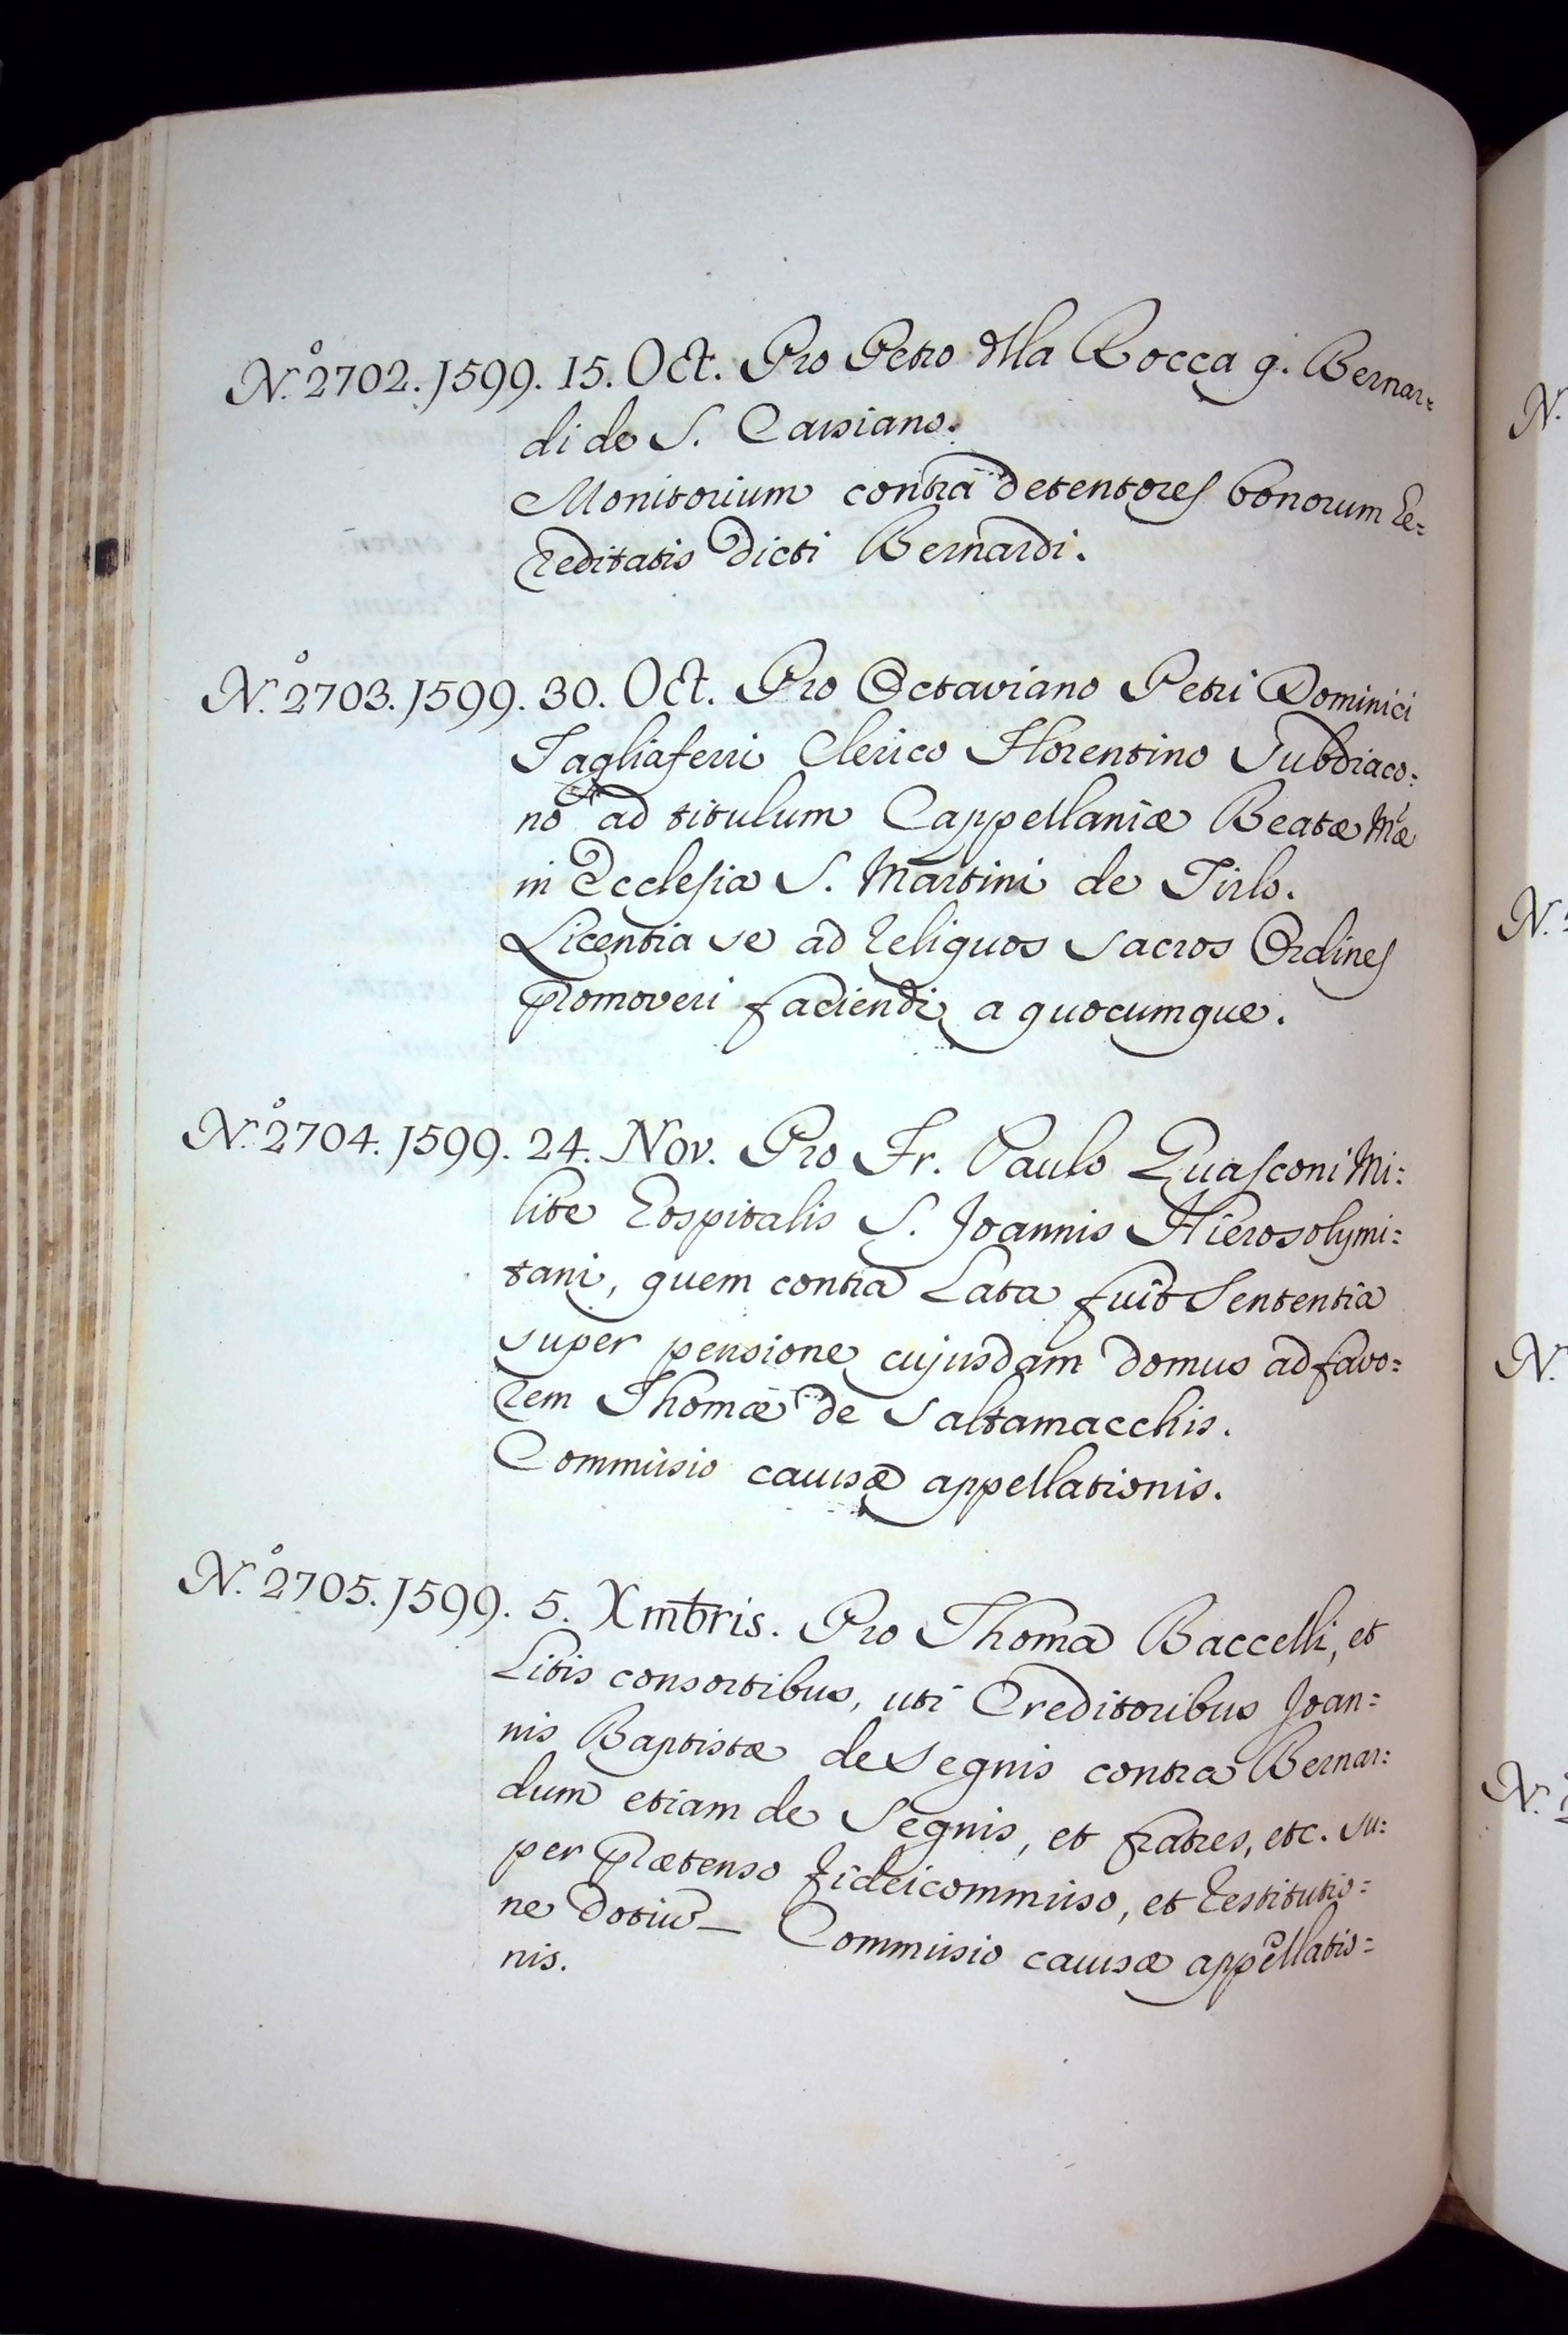 N.º 2702. 1599. 15. Oct. Pro Petro della Rocca q. Bernar=
di de S. Cassiano.
Monitorium contra detentores bonorum he=
reditatis dicti Bernardi.
N.º 2703. 1599. 30. Oct. Pro Octaviano Petri Dominici
Tagliaferri Clerico Florentino Subdiaco=
no ad titulum Cappellaniæ Beatæ Mæ
in Ecclesia S. Martini de Tirlo.
Licentia se ad reliquos sacros Ordines
promoveri faciendi a quocumque.
N.º 2704. 1599. 24. Nov. Pro Fr. Paulo Guasconi Mi=
lite Hospitalis S. Joannis Hierosolymi=
tani, quem contra Lata fuit Sententia
super pensione cujusdam domus ad favo=
rem Thomæ de Saltamacchis.
Commissio causæ appellationis.
N.º 2705. 1599. 5. Xmbris. Pro Thoma Baccelli, et
Litis consortibus, uti Creditoribus Joan=
nis Baptistæ de Segnis contra Bernar=
dum etiam de Segnis, et fratres, etc. su=
per prætenso fideicommisso, et restitutio=
ne Dotium — Commissio causæ appellatio=
nis.
N.
N.
N.
N.